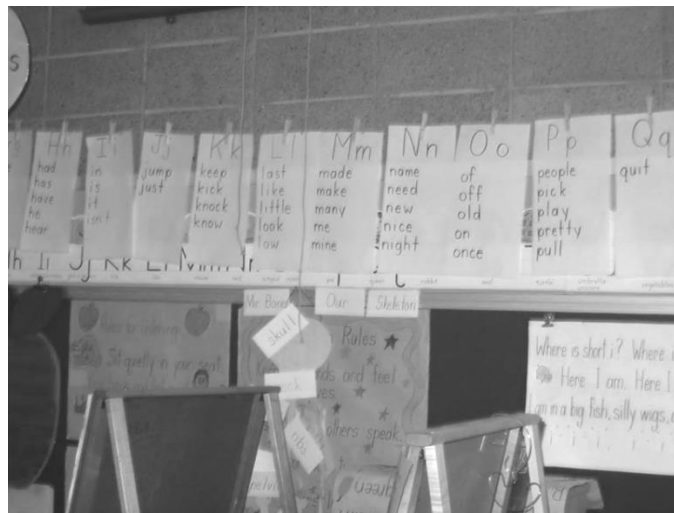 s
Hh
had
has
have
he
hear
Ii
in
is
it
isn't
Jj
jump
just
Kk
keep
kick
knock
know
Ll
last
like
little
look
low
Mm
made
make
many
me
mine
Nn
name
need
new
nice
night
Oo
of
off
old
on
once
Pp
people
pick
play
pretty
pull
Qq
quit
Ii Jj Kk Ll Mm Nn
Mr. Bones Our Skeleton
skull
ribs
pelvis
Rules for Listening
Sit quietly in your seat.
Rules
and feet
others speak.
green
Where is short i? Where
Here I am. Here I
am in a big fish, silly wigs,